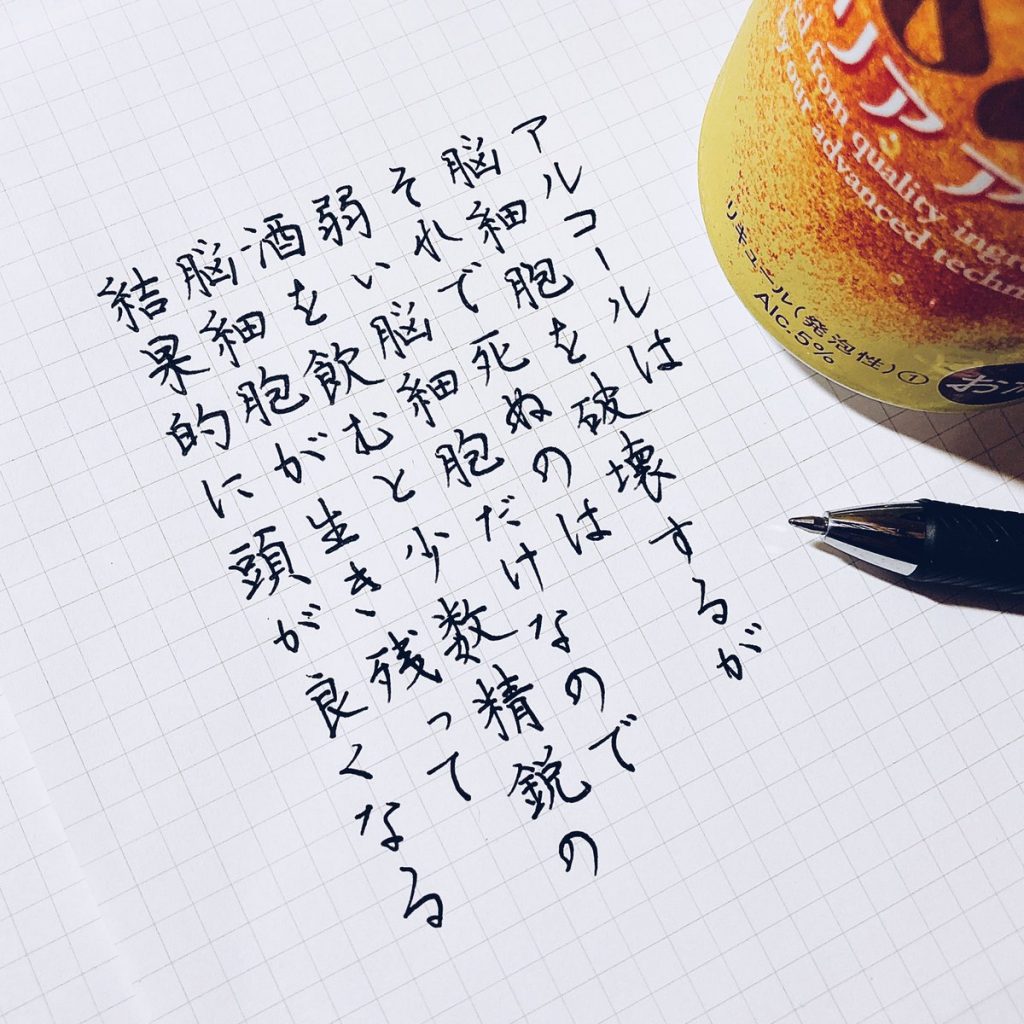 アルコールは
脳細胞を破壊するが
それで死ぬのは
弱い脳細胞だけなので
酒を飲むと少数精鋭の
脳細胞が生き残って
結果的に頭が良くなる
from quality
by our advanced
リキュール(発泡性)①
Alc.5%